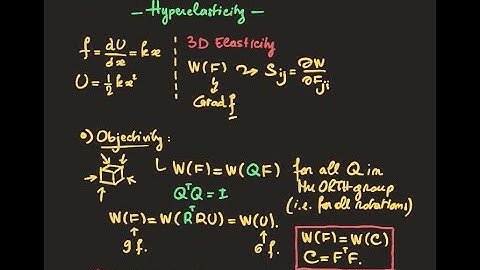 - Hyperelasticity -
f = dU/dx = kx
U = 1/2 kx²
3D Elasticity
W(F) ⤳ Sij = ∂W/∂Fji
Grad f
o) Objectivity:
W(F) = W(QF) for all Q in
QᵀQ = I the ORTH group
(i.e. for all rotations)
W(F) = W(RᵀRU) = W(U).
9 f. 6 f.
W(F) = W(C)
C = FᵀF.